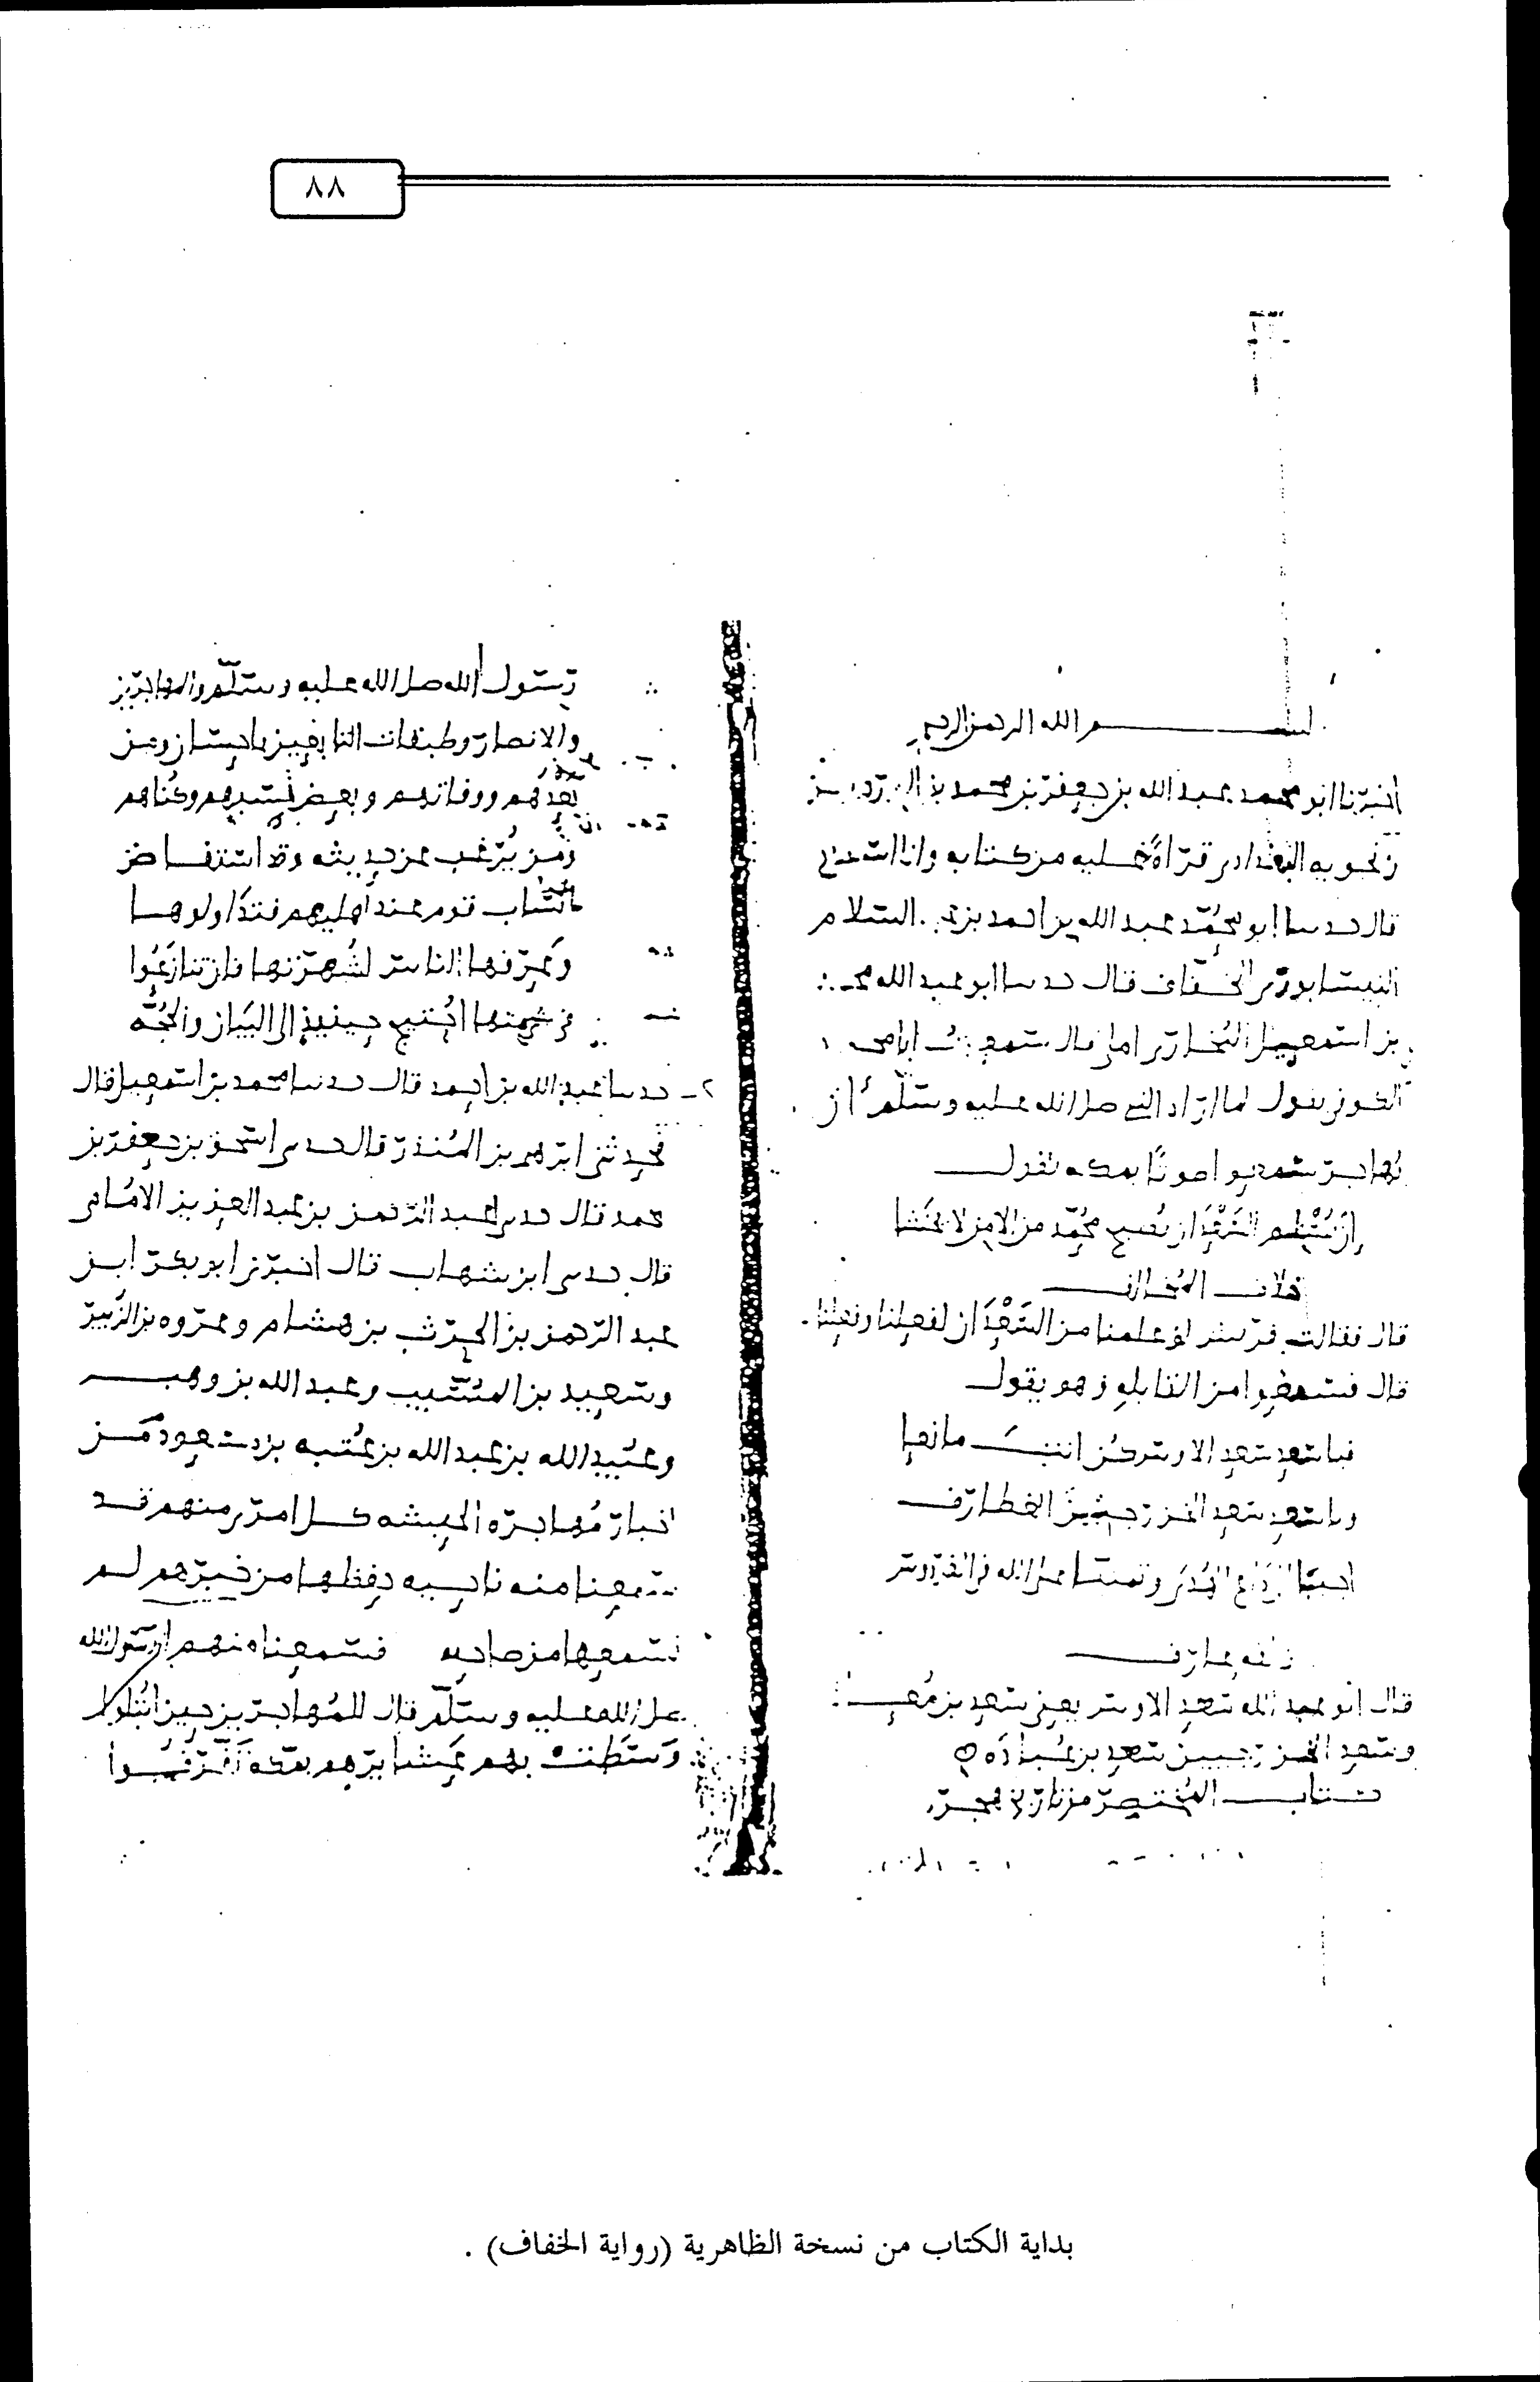 ٨٨
بسم الله الرحمن الرحيم
اخبرنا ابو محمد عبد الله بن جعفر بن محمد بن الورد بن
زنجويه البغدادي قراة عليه من كتابه وانا اسمع
قال حدسا ابو محمد عبد الله بن احمد بن عبد السلام
النيسابوري الخفاف قال حدسا ابو عبد الله محمد
بن اسمعيل البخاري قال سمعت
الكوفي يقول لما اراد النبي صلى الله عليه وسلم ان
يهاجر سمعوا صوتا بمكه يقول
ان يسلم السعدان يصبح محمد من الامر لا يخشا
خلاف المخالف
قال فقالت قريش لو علمنا من السعدان لفعلنا وفعلنا
قال فسمعوا من القابله وهو يقول
فيا سعد سعد الاوس كن انت مانعا
ويا سعد سعد الخزرجين الغطارف
اجيبا الى داع الهدى وتمنيا على الله في الفردوس
زلفه عارف
قال ابو عبد الله سعد الاوس يعني سعد بن معاذ
وسعد الخزرجيين سعد بن عباده
كتاب المختصر من تاريخ هجرة
رسول الله صلى الله عليه وسلم والمهاجرين
والانصار وطبقات التابعين باحسان ومن
بعدهم ووفاتهم وبعض نسبهم وكناهم
ومن يرغب عن حديثه وقد استفاض
انساب قوم عند اهليهم فتداولوها
وعرفها الناس لشهرتها فان تنازعوا
في شي منها احتيج حينيذ الى البيان والحجه
٢- حدسا عبد الله بن احمد قال حدسا محمد بن اسمعيل قال
حدثني ابرهيم بن المنذر قال حدسى اسحق بن جعفر بن
محمد قال حدسى عبد الرحمن بن عبد العزيز الامامى
قال حدسى ابن شهاب قال اخبرني ابو بكر ابن
عبد الرحمن بن الحرث بن هشام وعروه بن الزبير
وسعيد بن المسيب وعبد الله بن وهب
وعبيد الله بن عبد الله بن عتبه بن مسعود من
اخبار مهاجره الحبشه كل امرى منهم قد
سمعنا منه ناحيه حفظها من خبرهم لم
نسمعها من صاحبه فسمعنا منهم ان رسول الله
صلى الله عليه وسلم قال للمهاجرين حين ابتلوا
وسطت بهم عشايرهم بمكه تفرقوا
بداية الكتاب من نسخة الظاهرية (رواية الخفاف) .